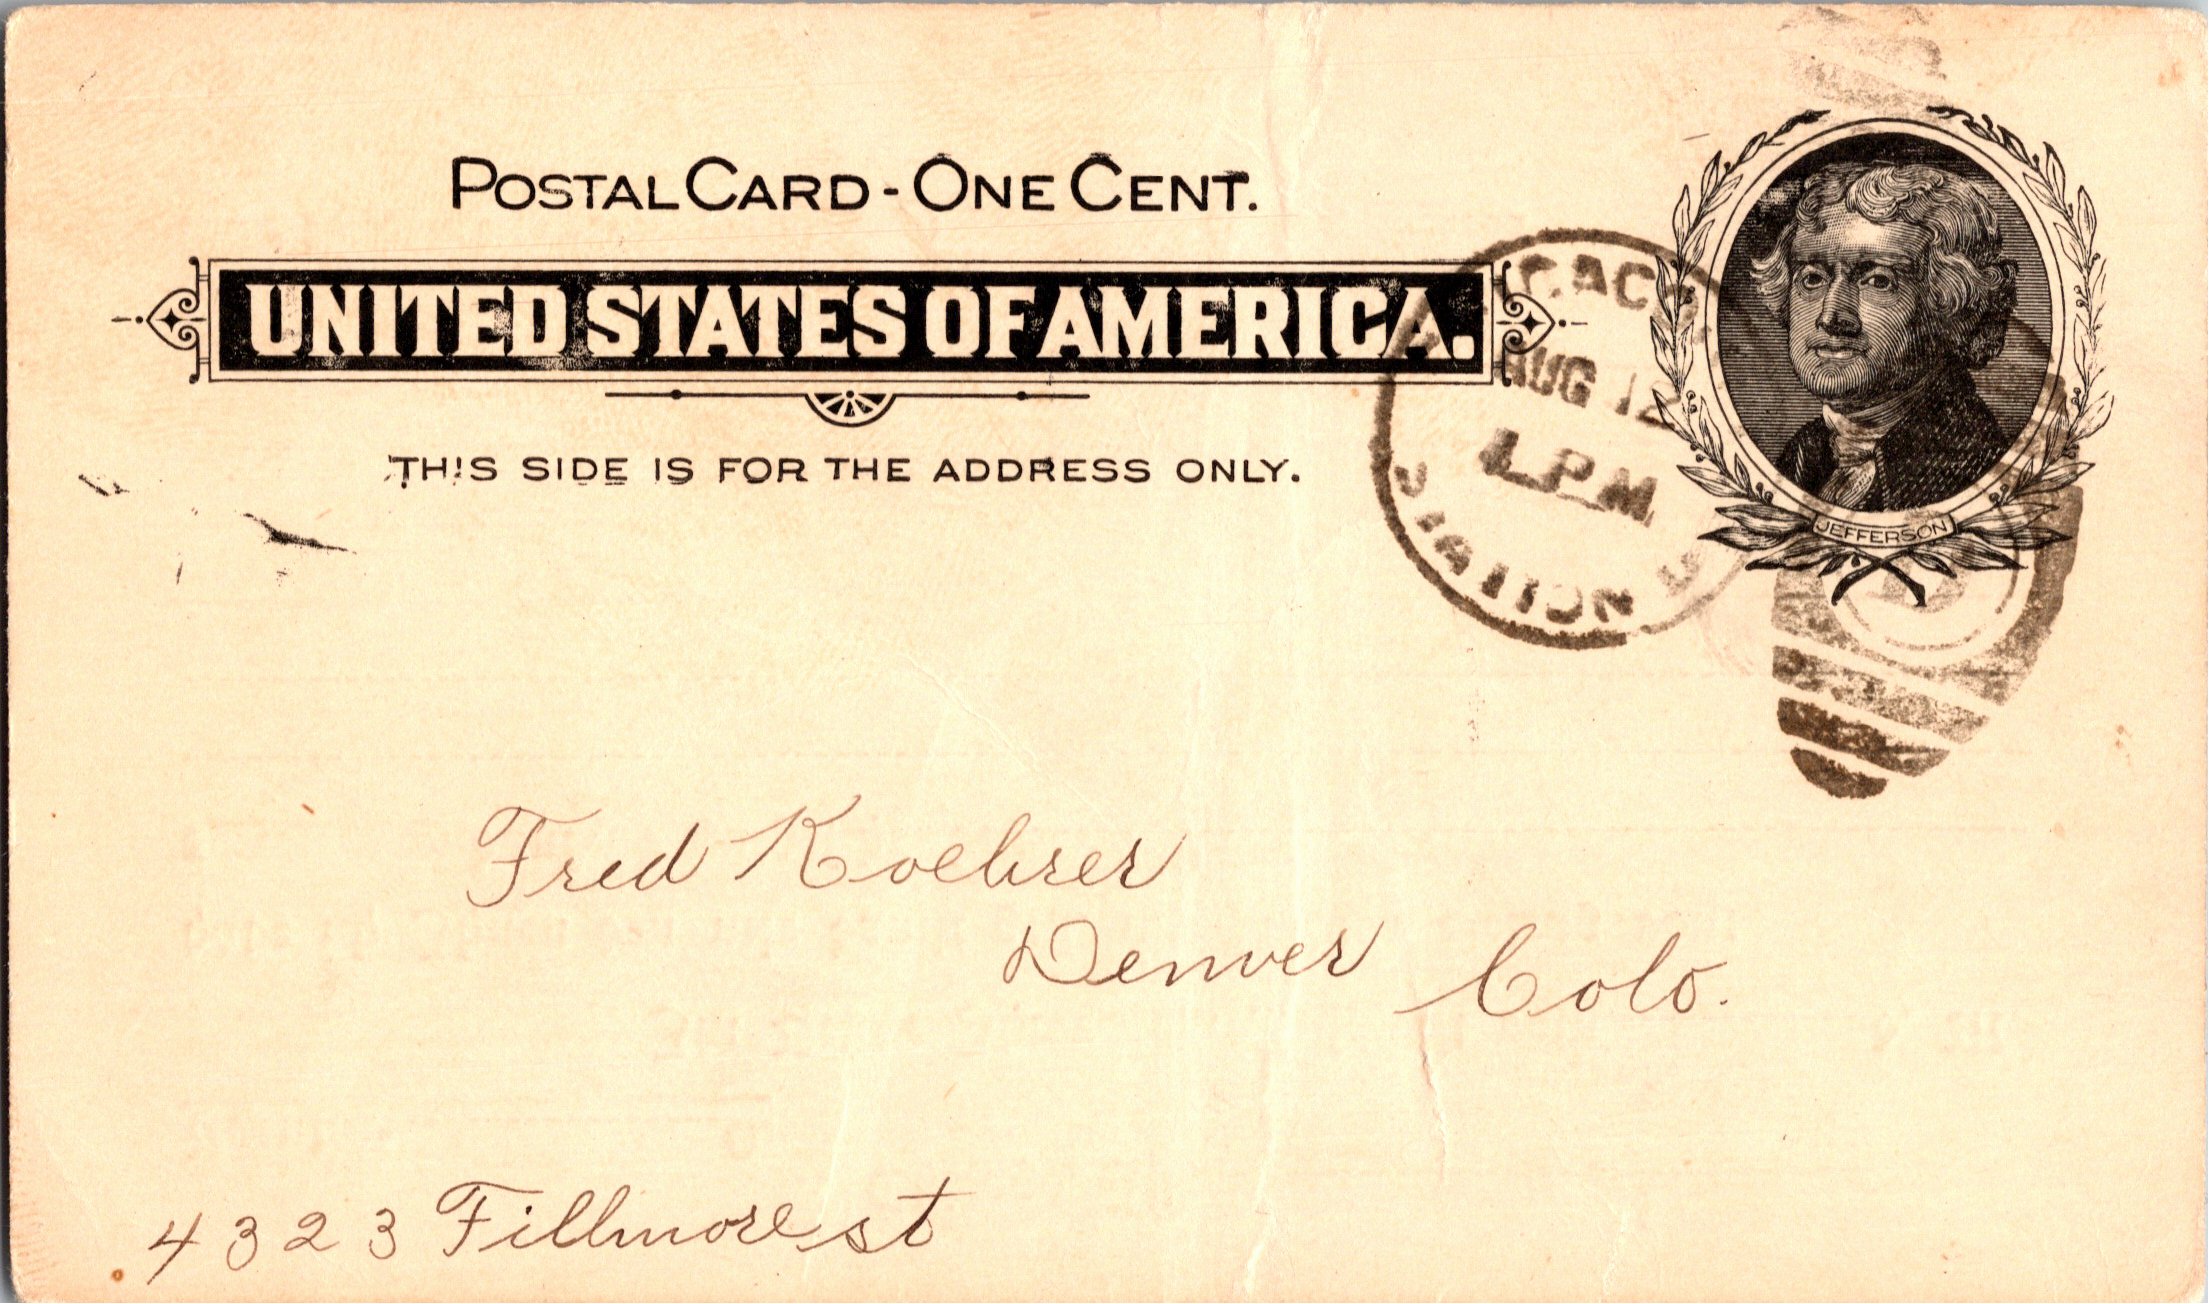 POSTAL CARD - ONE CENT.
UNITED STATES OF AMERICA.
THIS SIDE IS FOR THE ADDRESS ONLY.
JEFFERSON
AUG 12
P.M
STATION
Fred Koehrer
Denver Colo.
4323 Fillmore st